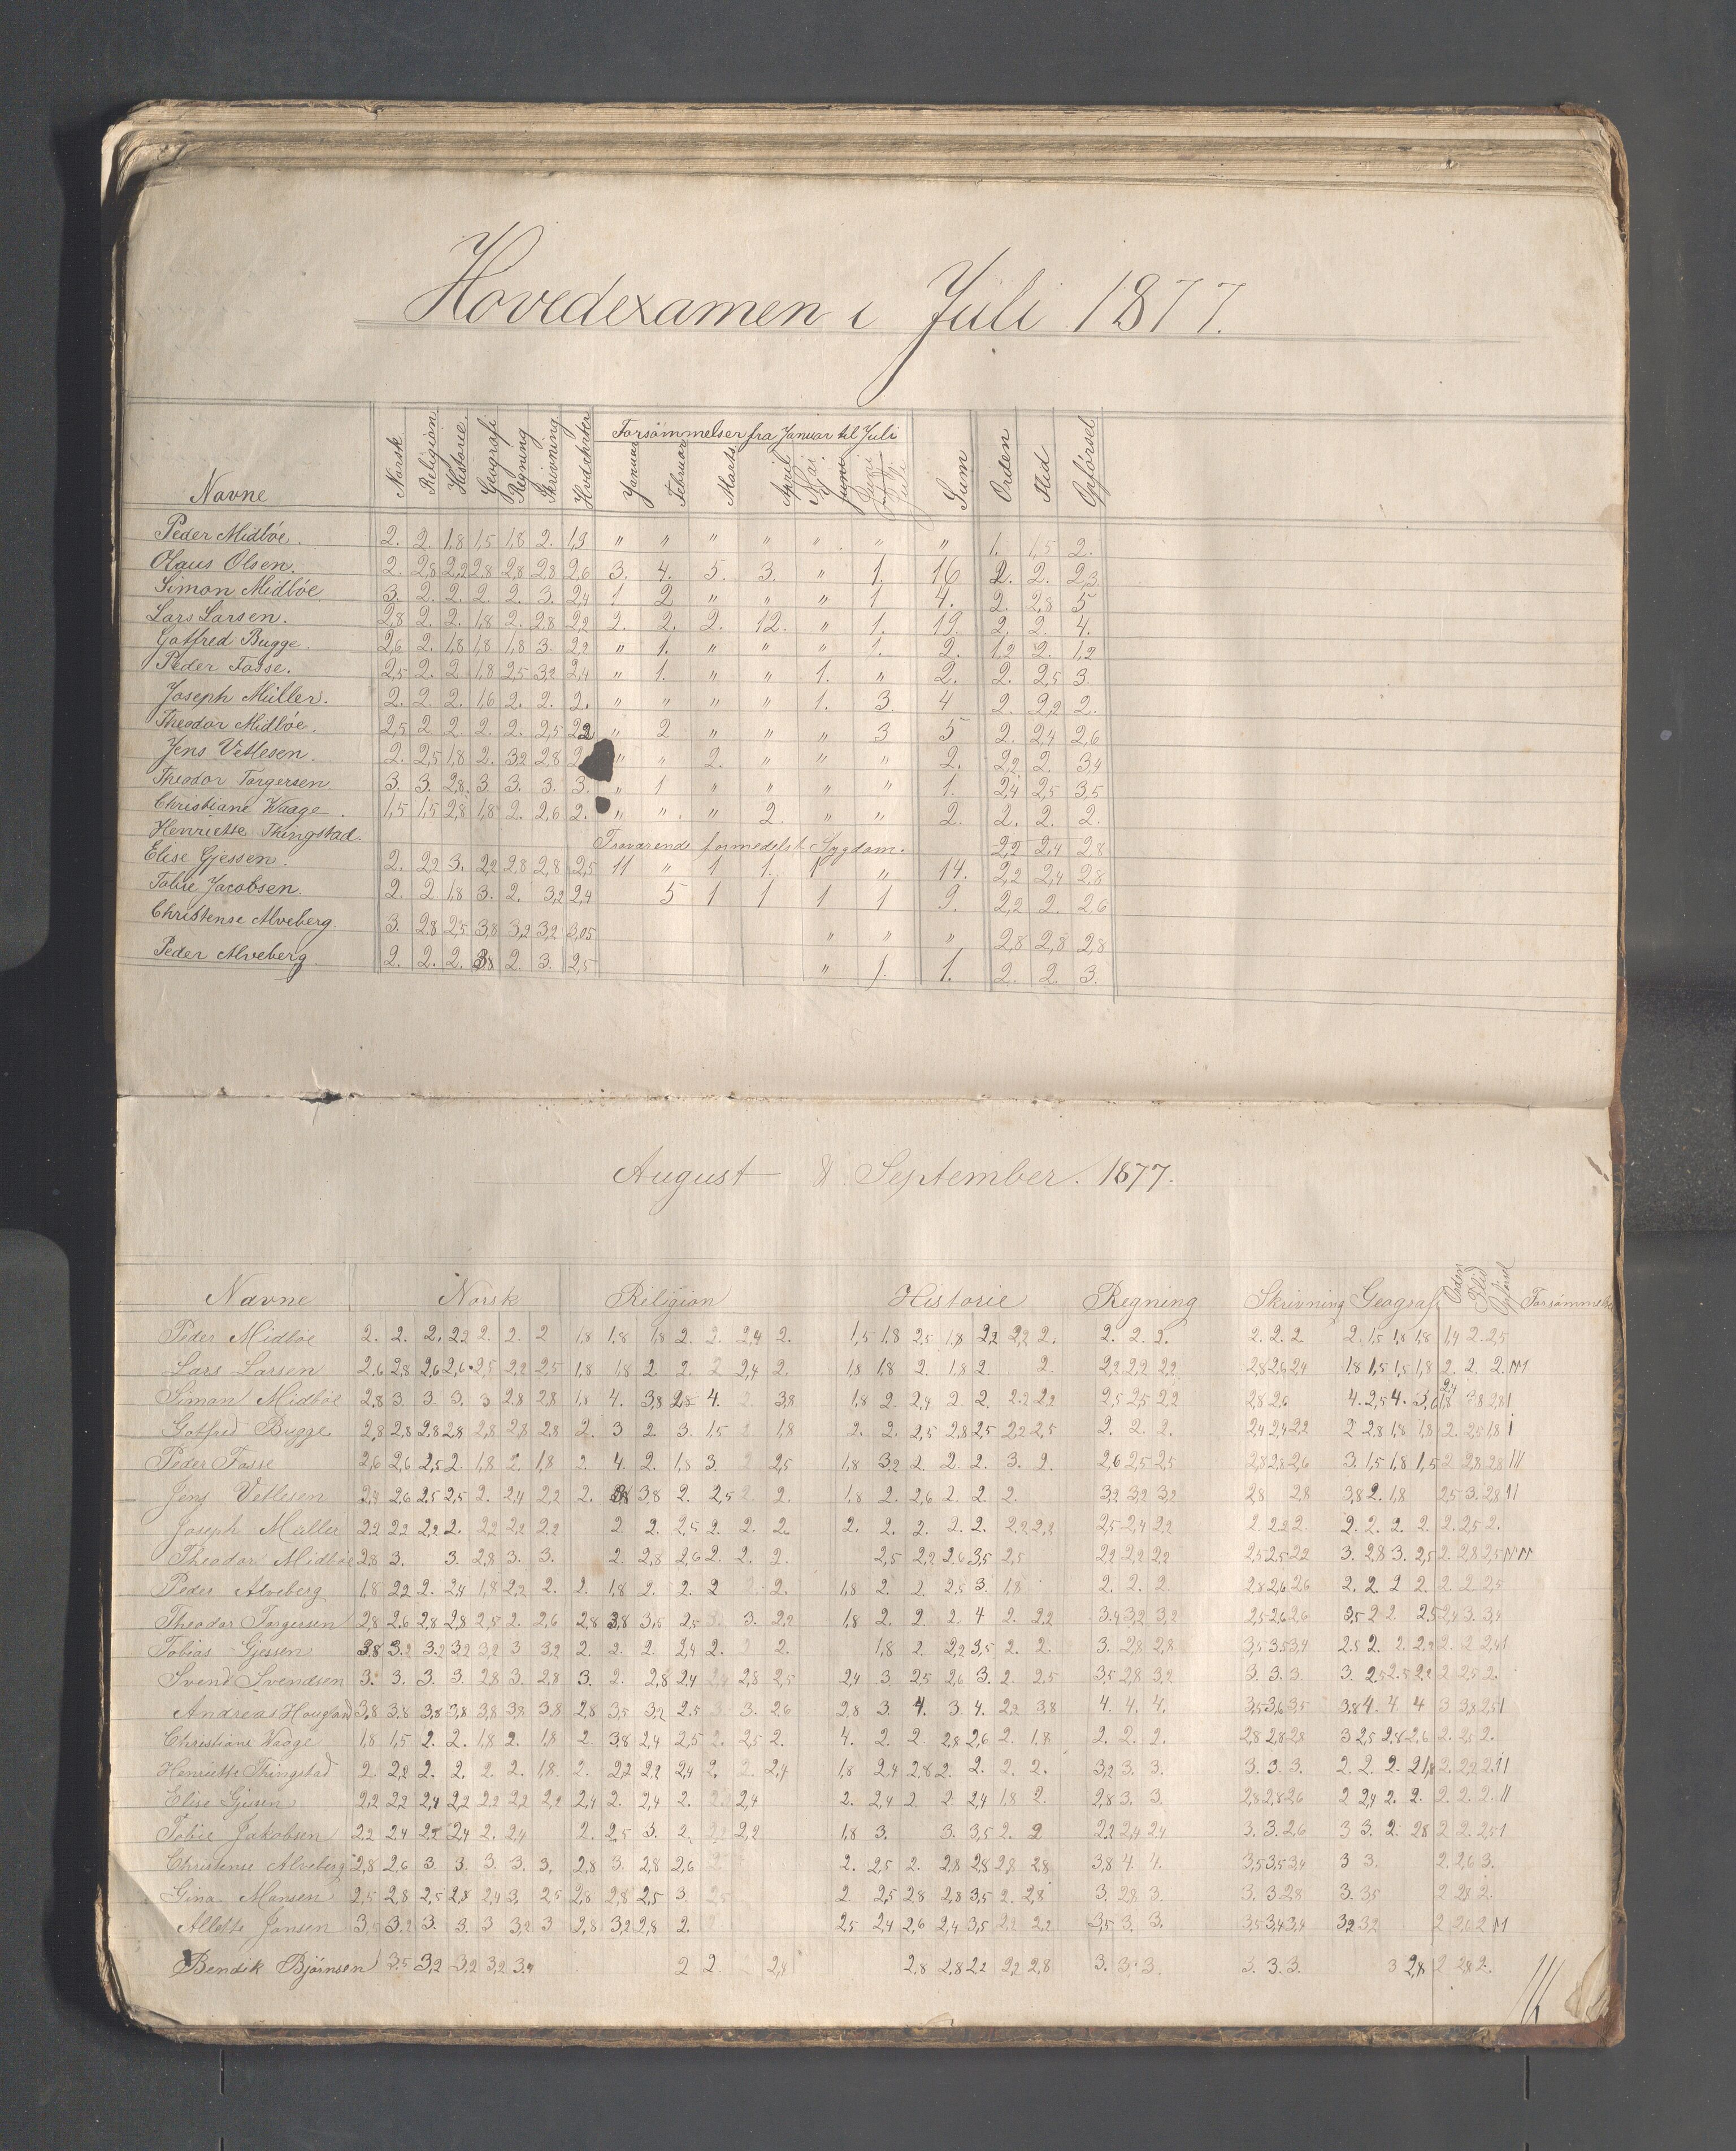 Hovedexamen i Juli 1877.
Navne Norsk Religion Historie Geografi Regning Skrivning Hvdchrkter Forsömmelser fra Januar til Juli Sum Orden Flid Opförsel
Januar Februar Marts April Mai Juni Juli
Peder Midböe. 2. 2. 1,8 1,5 1,8 2. 1,9 " " " " " " " 1. 1,5 2.
Olaus Olsen. 2. 2,8 2,2 2,8 2,8 2,8 2,6 3. 4. 5. 3. " 1. 16 2. 2. 2,3
Simon Midböe 3. 2. 2. 2. 2. 3. 2,4 1 2 " " " 1 4. 2. 2,8 5
Lars Larsen. 2,8 2. 2. 1,8 2. 2,8 2,2 2. 2. 2. 12. " 1. 19. 2. 2. 4.
Gotfred Bugge. 2,6 2. 1,8 1,8 1,8 3. 2,2 " 1. " " " 1. 2. 1,2 2. 1,2
Peder Fasse. 2,5 2. 2. 1,8 2,5 3,2 2,4 " 1. " " 1. " 2. 2. 2,5 3.
Joseph Müller. 2. 2. 2. 1,6 2. 2. 2. " " " " 1. 3. 4 2. 2,2 2.
Theodor Midböe. 2,5 2 2. 2. 2. 2,5 2,2 " 2 " " " 3 5 2. 2,4 2,6
Jens Vetlesen. 2. 2,5 1,8 2. 3,2 2,8 " " 2. " " " 2. 2,2 2. 3,4
Theodor Torgersen 3. 3. 2,8 3. 3. 3. 3. " 1 " " " " 1. 2,4 2,5 3,5
Christiane Waage. 1,5 1,5 2,8 1,8 2. 2,6 2. " " " 2. " " 2. 2. 2. 2.
Henriette Thingstad. Fraværende formedelst Sygdom. 2,2 2,4 2,8
Elise Gjessen. 2. 2,2 3. 2,2 2,8 2,8 2,5 11 " 1 1. 1 " 14. 2,2 2,4 2,8
Tobie Jacobsen. 2. 2. 1,8 3. 2. 3,2 2,4 5 1 1 1 1 9. 2,2 2. 2,6
Christense Alveberg. 3. 2,8 2,5 3,8 3,2 3,2 3,05 " " " 2,8 2,8 2,8
Peder Alveberg 2. 2. 2. 3,8 2. 3. 2,5 " 1. 1. 2. 2. 3.
August & September. 1877.
Navne Norsk Religion Historie Regning Skrivning Geografi Orden Flid Opförsel Forsömmelser
Peder Midböe 2. 2. 2. 2,2 2. 2. 2 1,8 1,8 1,8 2. 2. 2,4 2. 1,5 1,8 2,5 1,8 2,2 2,2 2. 2. 2. 2. 2. 2. 2 2. 1,5 1,8 1,8 1,4 2. 2,5
Lars Larsen 2,6 2,8 2,6 2,6 2,5 2,2 2,5 1,8 1,8 2. 2. 2 2,4 2. 1,8 1,8 2. 1,8 2. 2. 2,2 2,2 2,2 2,8 2,6 2,4 1,8 1,5 1,5 1,8 2. 2. 2.
Simon Midböe 2,8 3. 3. 3. 3 2,8 2,8 1,8 4. 3,8 2,8 4. 2. 3,8 1,8 2. 2,4 2. 2. 2,2 2,2 2,5 2,5 2,2 2,8 2,6 4. 2,5 4. 3,8 2,8 1
Gotfred Bugge 2,8 2,8 2,8 2,8 2,8 2,8 2,8 2. 3 2. 3. 1,5 1,8 2. 2. 2,5 2,8 2,5 2,2 2,5 2. 2. 2. 2,4 2,4 2,2 2 2,8 1,8 1,8 2. 2,5 1,8 1
Peder Fasse 2,6 2,6 2,5 2. 1,8 2. 1,8 2. 4. 2. 1,8 3. 2 2,5 1,8 3,2 2. 2. 2. 3. 2. 2,6 2,5 2,5 2,8 2,8 2,6 3. 1,5 1,8 1,5 2 2,8 2,8 111
Jens Vetlesen 2,4 2,6 2,5 2,5 2. 2,4 2,2 2. 3,8 3,8 2. 2,5 2. 2. 1,8 2. 2,6 2. 2. 2. 3,2 3,2 3,2 2,8 2,8 3,8 2. 1,8 2,5 3. 2,8 11
Joseph Müller 2,2 2,2 2,2 2. 2,2 2,2 2,2 2. 2. 2,5 2. 2. 2. 2. 2. 2. 2. 2. 2,2 2,2 2,5 2,4 2,2 2. 2,2 2. 2. 2. 2. 2. 2. 2,5 2.
Theodor Midböe 2,8 3. 3. 2,8 3. 3. 2. 2,8 2,6 2. 2. 2. 2,5 2,2 2,6 3,5 2,5 2,2 2,2 2,2 2,5 2,5 2,2 3. 2,8 3. 2,5 2. 2,8 2,5
Peder Alveberg 1,8 2,2 2. 2,4 1,8 2,2 2. 2. 1,8 2. 2. 2 2. 2. 1,8 2. 2. 2,5 3. 1,8 2. 2. 2. 2,8 2,6 2,6 2. 2. 2 2. 2. 2. 2,5
Theodor Torgersen 2,8 2,6 2,8 2,8 2,5 2. 2,6 2,8 3,8 3,5 2,5 3. 2,2 1,8 2. 2. 2. 4 2. 2,2 3,4 3,2 3,2 2,5 2,6 2,6 3,5 2 2. 2,5 2,4 3. 3,4
Tobias Gjessen 3,8 3,2 3,2 3,2 3,2 3 3,2 2. 2. 2. 2,4 2. 2. 1,8 2. 2,2 3,5 2. 2. 3. 2,8 2,8 3,5 3,5 3,4 2,5 2. 2. 2,2 2. 2 2,4 1
Svend Svendsen 3. 3. 3. 3. 2,8 3. 2,8 3. 2. 2,8 2,4 2,8 2,5 2,4 3. 2,5 2,6 3. 2. 2,5 3,5 2,8 3,2 3. 3. 3. 3. 2,5 2,5 2,2 2 2,5 2.
Andreas Hougland 3,8 3,8 3,8 3,8 3,8 3,8 3,8 2,8 3,5 3,2 2,5 3. 2,6 2,8 3. 4. 3. 4. 2,2 3,8 4. 4. 4. 3,5 3,6 3,5 3,8 4. 4. 4 3 3,8 2,5 1
Christiane Waage 1,8 1,5 2. 2. 1,8 2. 1,8 2. 3,8 2,4 2,5 2. 2,5 2. 4. 2. 2. 2,8 2,6 2. 1,8 2. 2. 2. 2,8 2,8 2,8 3 2,5 2,8 2,6 2. 2,5 2.
Henriette Thingstad 2. 2,2 2. 2. 2. 2. 1,8 2. 2,2 2,2 2,4 2. 2. 2,4 1,8 2,4 2,8 2. 2. 2. 2. 3,2 3. 3. 3. 3. 3. 2. 2. 2. 2 1,8 2. 2,2 2. 11
Elise Gjesen 2,2 2,2 2,4 2,2 2,2 2,2 2,2 2,4 2. 2,4 2. 2,4 2. 2,4 2 2 2,4 1,8 2. 2,8 3. 3. 2,8 2,8 2,6 2 2,4 2. 2. 2. 2. 2. 11
Tobie Jakobsen 2,2 2,4 2,5 2,4 2. 2,4 2. 2,5 3. 2. 2,2 2,2 1,8 3. 3. 3,5 2. 2 2,2 2,4 2,4 3. 3. 2,6 3 3. 2. 2,8 2 2. 2,5 1
Christense Alveberg 2,8 2,6 3. 3. 3. 3. 3. 2,8 3. 2,8 2,6 2. 2,5 2. 2,8 2,8 2,8 2,8 3,8 4. 4. 3,5 3,5 3,4 3 3. 2. 2,6 3.
Gina Monsen 2,5 2,8 2,5 2,8 2,4 3. 2,5 2,8 2,8 2,5 3. 2. 2,5 2,8 2,8 3,5 2. 2,8 3. 2,8 3. 3. 3. 2,8 3. 3,5 2 2,8 2.
Allette Jansen 3,5 3,2 3. 3. 3 3,2 3 2,8 3,2 2,8 2. 2,5 2,4 2,6 2,4 3,5 2,2 2,2 3,5 3. 3. 3,5 3,4 3,4 3,2 3,2 2 2,6 2
Bendik Bjørnsen 3,5 3,2 3,2 3,2 3,4 2 2. 2,4 2,8 2,8 2,2 2,2 2,8 3. 3. 3. 3. 3. 3. 3 2,8 2 2,8 2.